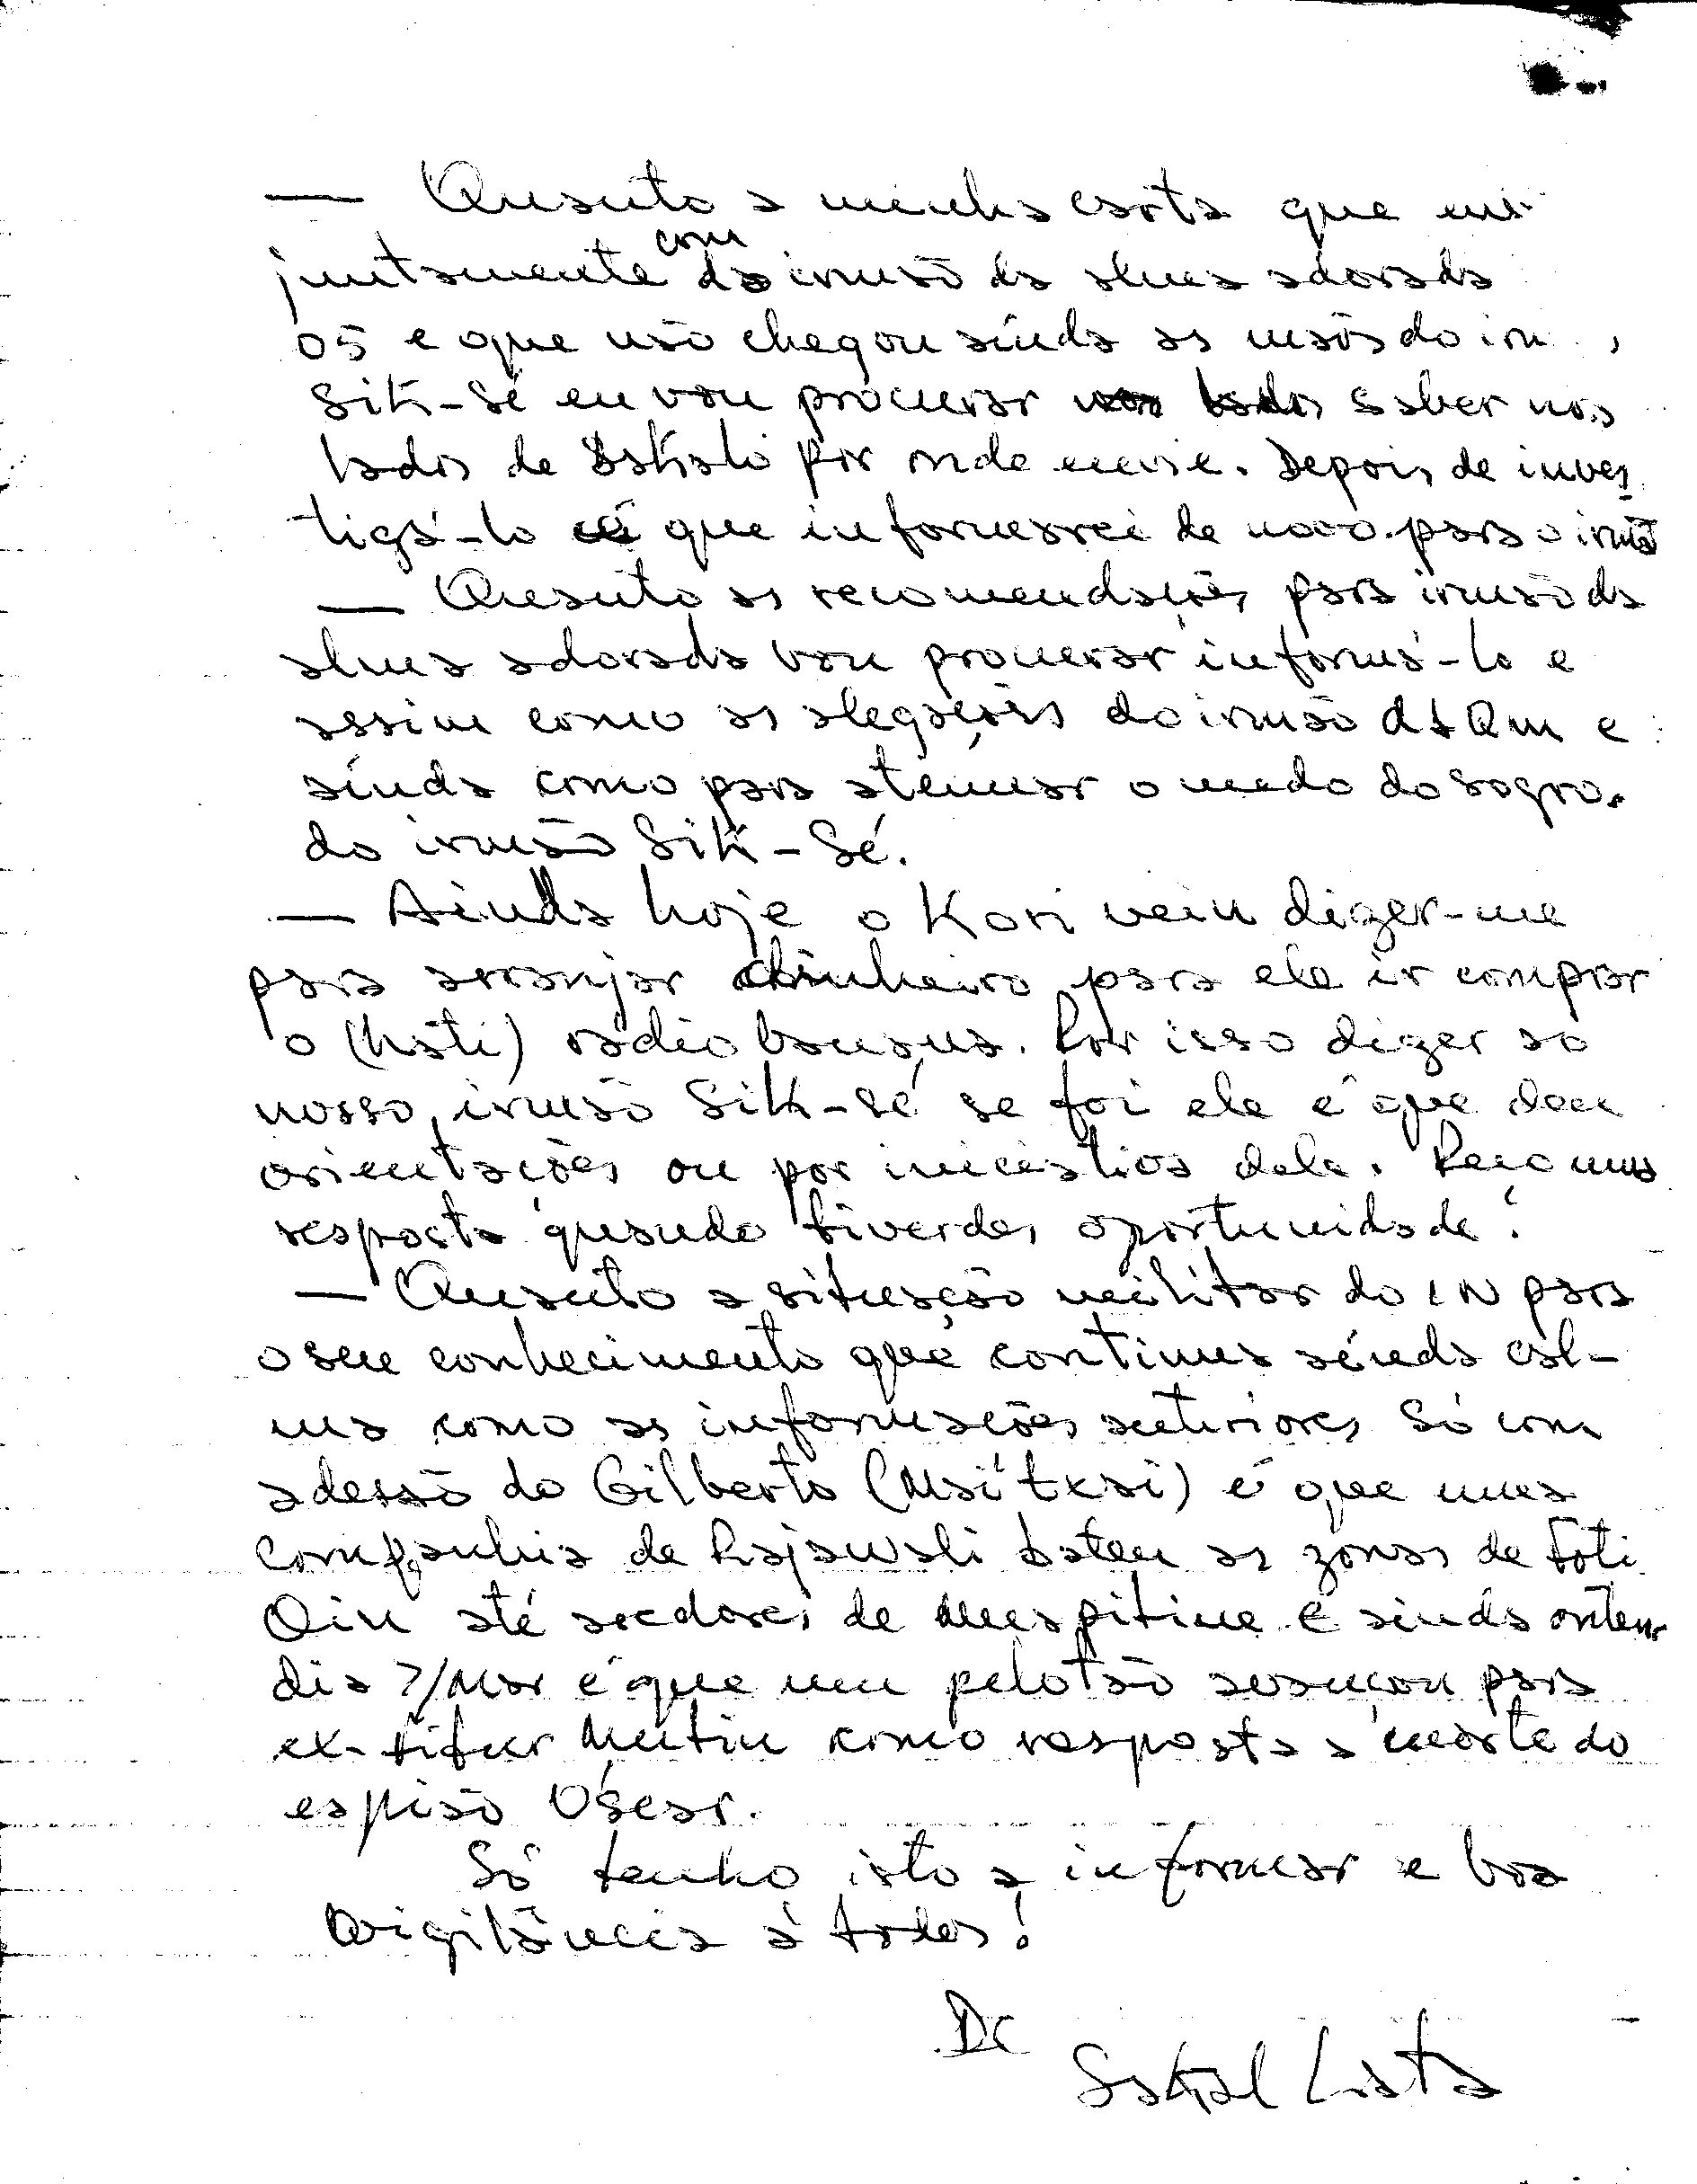 — Quanto a minha carta que en
juntamente com do irmão da alma adorada
05 e que não chegou ainda as mãos do irm ,
Sik-Sé eu vou procurar saber nos
lados de Bakalo por onde envie. Depois de inves
tigá-lo é que informarei de novo para o irmão
— Quanto as recomendações para irmão da
alma adorada vou procurar informá-lo e
assim como as alegações do irmão e
ainda como para atenuar o medo do sogro.
do irmão Sik-Sé.
— Ainda hoje o Kori vein dizer-me
para arranjar dinheiro para ele ir comprar
o (hati) rádio banana. Por isso dizer ao
nosso irmão Sik-Sé se foi ele é que deu
orientações ou por iniciativa dele. Peço uma
resposta quando tiverdes oportunidade.
— Quanto a situação militar do IN para
o seu conhecimento que continua ainda cal-
ma como as informações anteriores só com
adesão do Gilberto (Mai txai) é que uma
companhia de Rajawali bateu as zonas de Foti
Oin até arredores de e ainda ontem
dia 7/Mar é que um pelotão avançou para
ex- Mutin como resposta a morte do
espião Óscar.
Só tenho isto a informar e boa
vigilância à todos!
DC
Sakal Lata